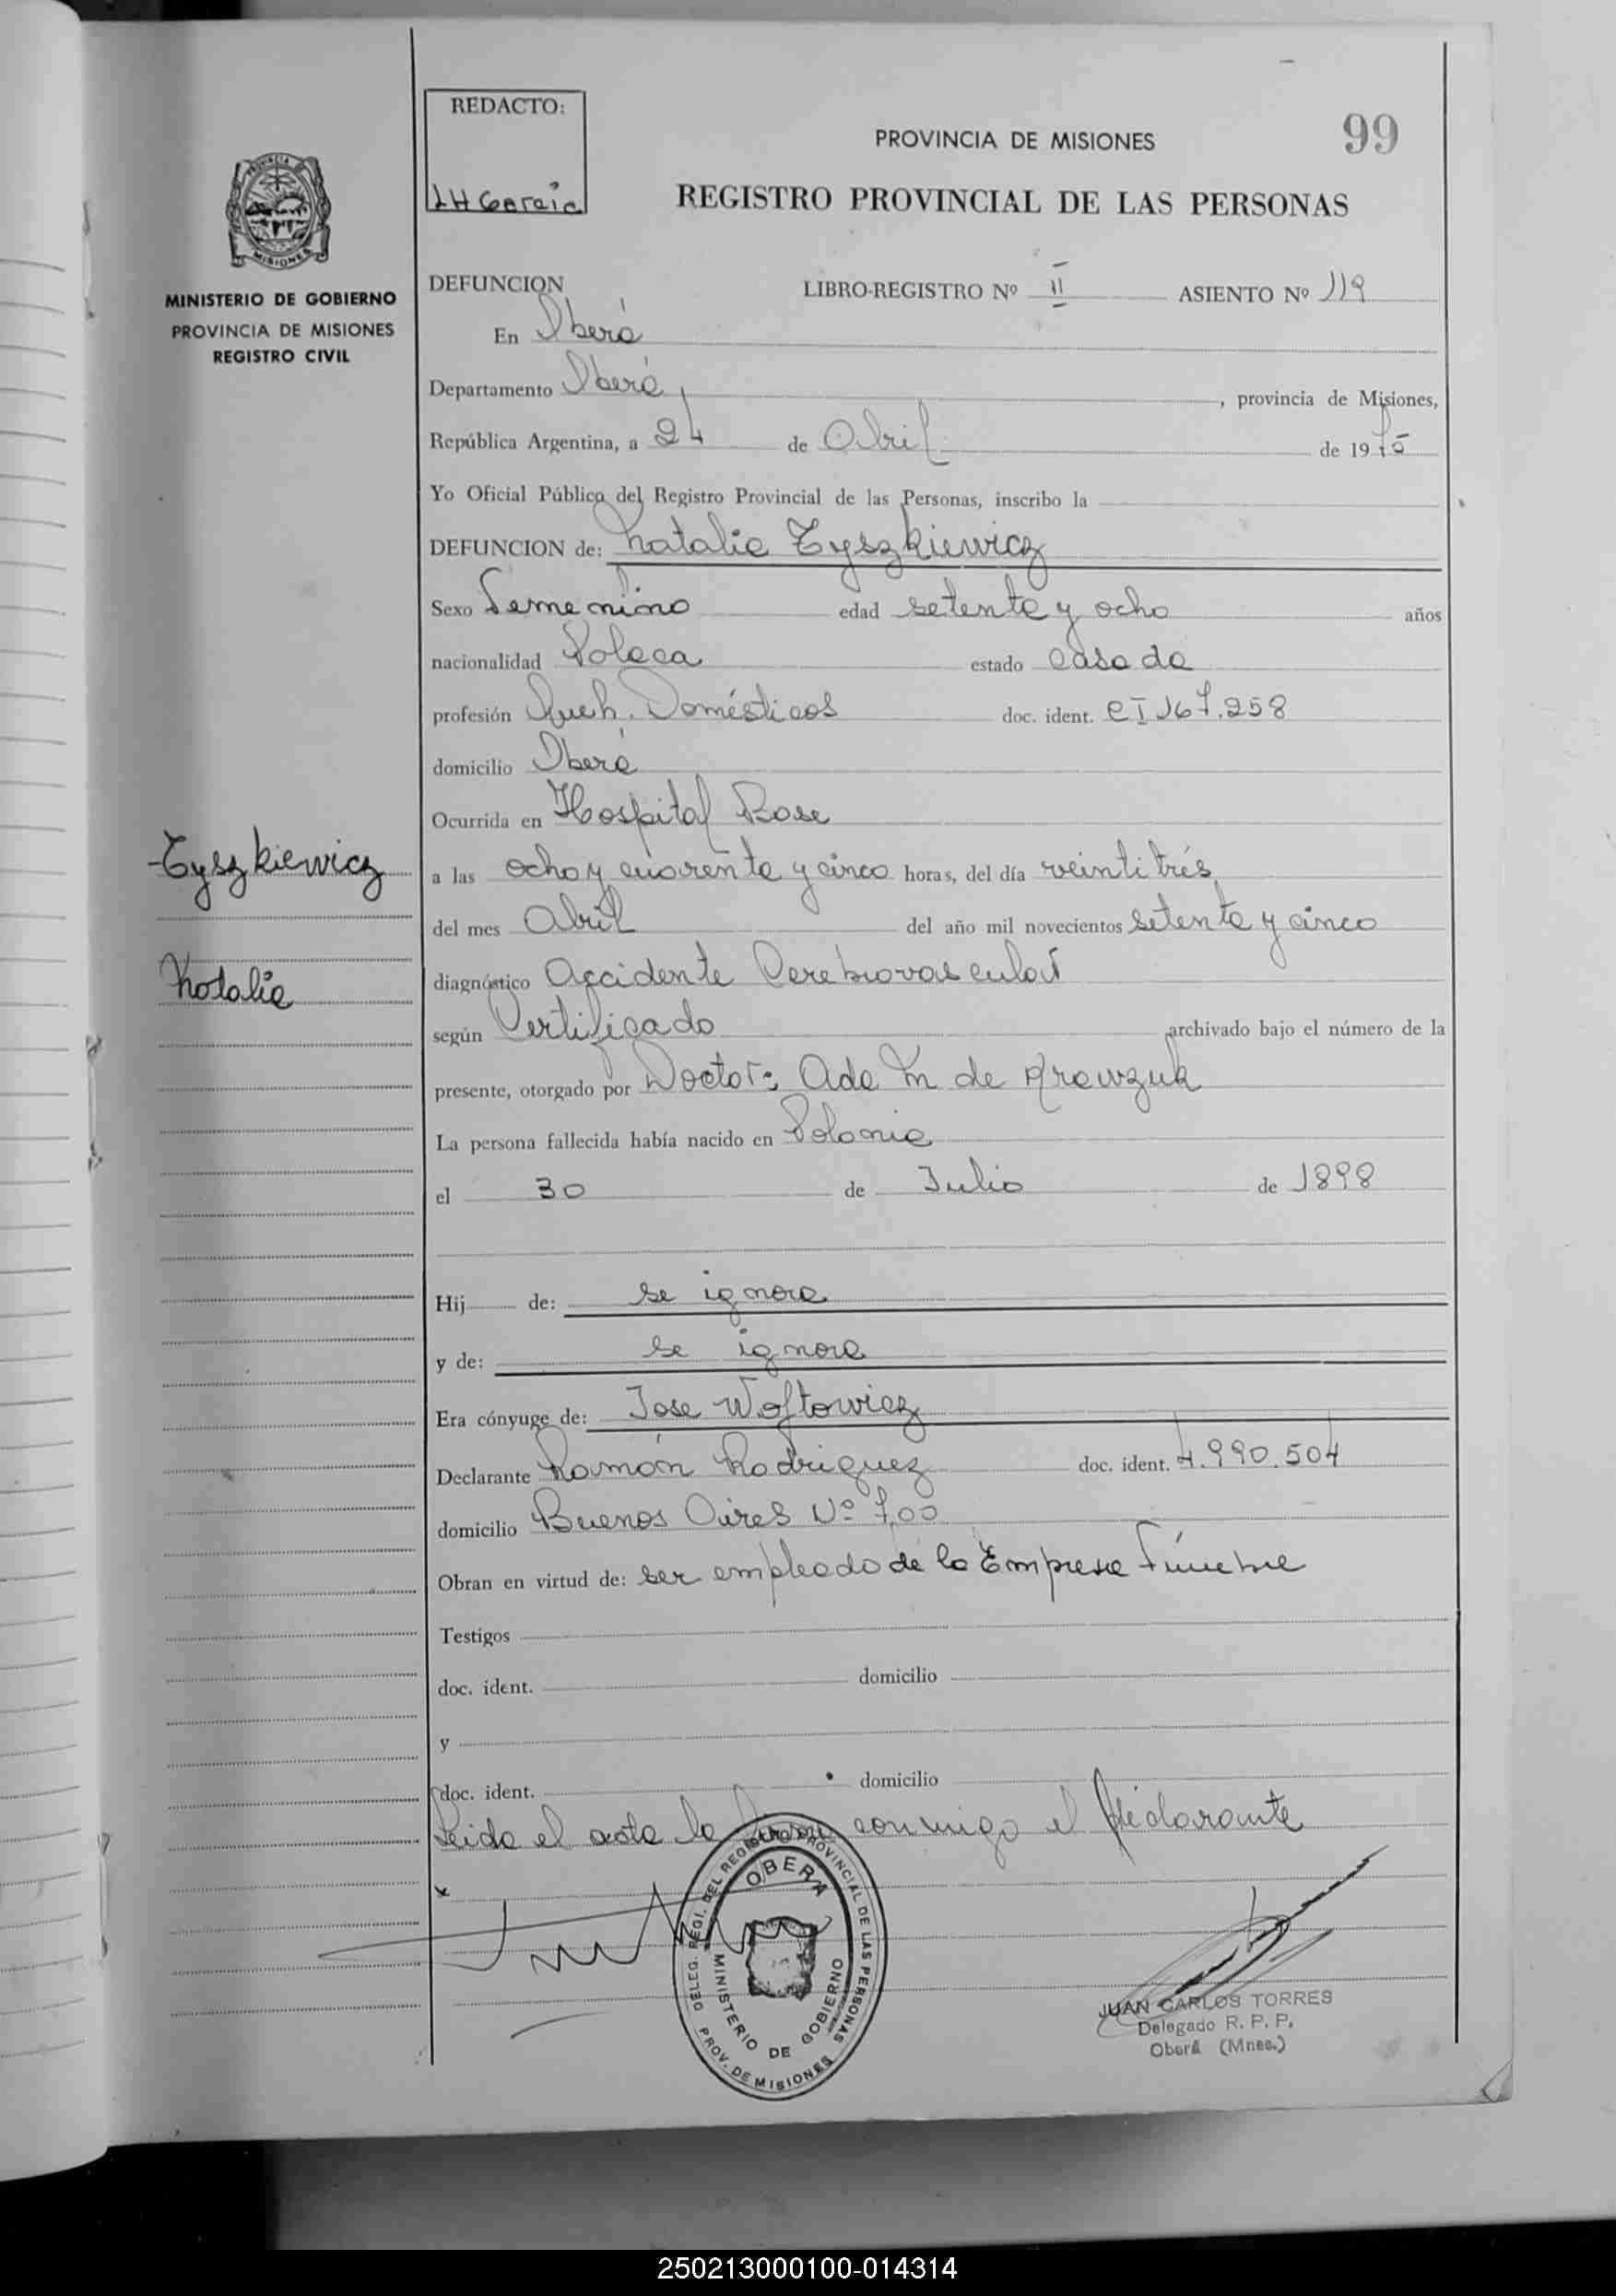 REDACTO:
LH Garcia
99
PROVINCIA DE MISIONES
REGISTRO PROVINCIAL DE LAS PERSONAS
PROVINCIA DE
MISIONES
MINISTERIO DE GOBIERNO
PROVINCIA DE MISIONES
REGISTRO CIVIL
DEFUNCION LIBRO-REGISTRO Nº II ASIENTO Nº 119
En Oberá
Departamento Oberá, provincia de Misiones,
República Argentina, a 24 de Abril de 1975
Yo Oficial Público del Registro Provincial de las Personas, inscribo la
DEFUNCION de: Natalia Tyszkiewicz
Sexo Femenino edad setenta y ocho años
nacionalidad Polaca estado casada
profesión Queh. Domésticos doc. ident. CI 167.258
domicilio Oberá
Ocurrida en Hospital Base
Tyszkiewicz
a las ocho y cuarenta y cinco horas, del día veintitrés
del mes Abril del año mil novecientos setenta y cinco
Natalia
diagnóstico Accidente Cerebrovascular
según Certificado archivado bajo el número de la
presente, otorgado por Doctor: Ada M de
La persona fallecida había nacido en Polonia
el 30 de Julio de 1898
Hij de: se ignora
y de: se ignora
Era cónyuge de: Jose Woftowicz
Declarante Ramón Rodriguez doc. ident. 4.990.504
domicilio Buenos Aires Nº 700
Obran en virtud de: ser empleado de la Empresa Fúnebre
Testigos
doc. ident. domicilio
y
doc. ident. domicilio
Leida el acta la firma conmigo el declarante
x
DELEG. REGI. DEL REGISTRO PROVINCIAL DE LAS PERSONAS
OBERA
MINISTERIO DE GOBIERNO
PROV. DE MISIONES
JUAN CARLOS TORRES
Delegado R. P. P.
Oberá (Mnes.)
250213000100-014314